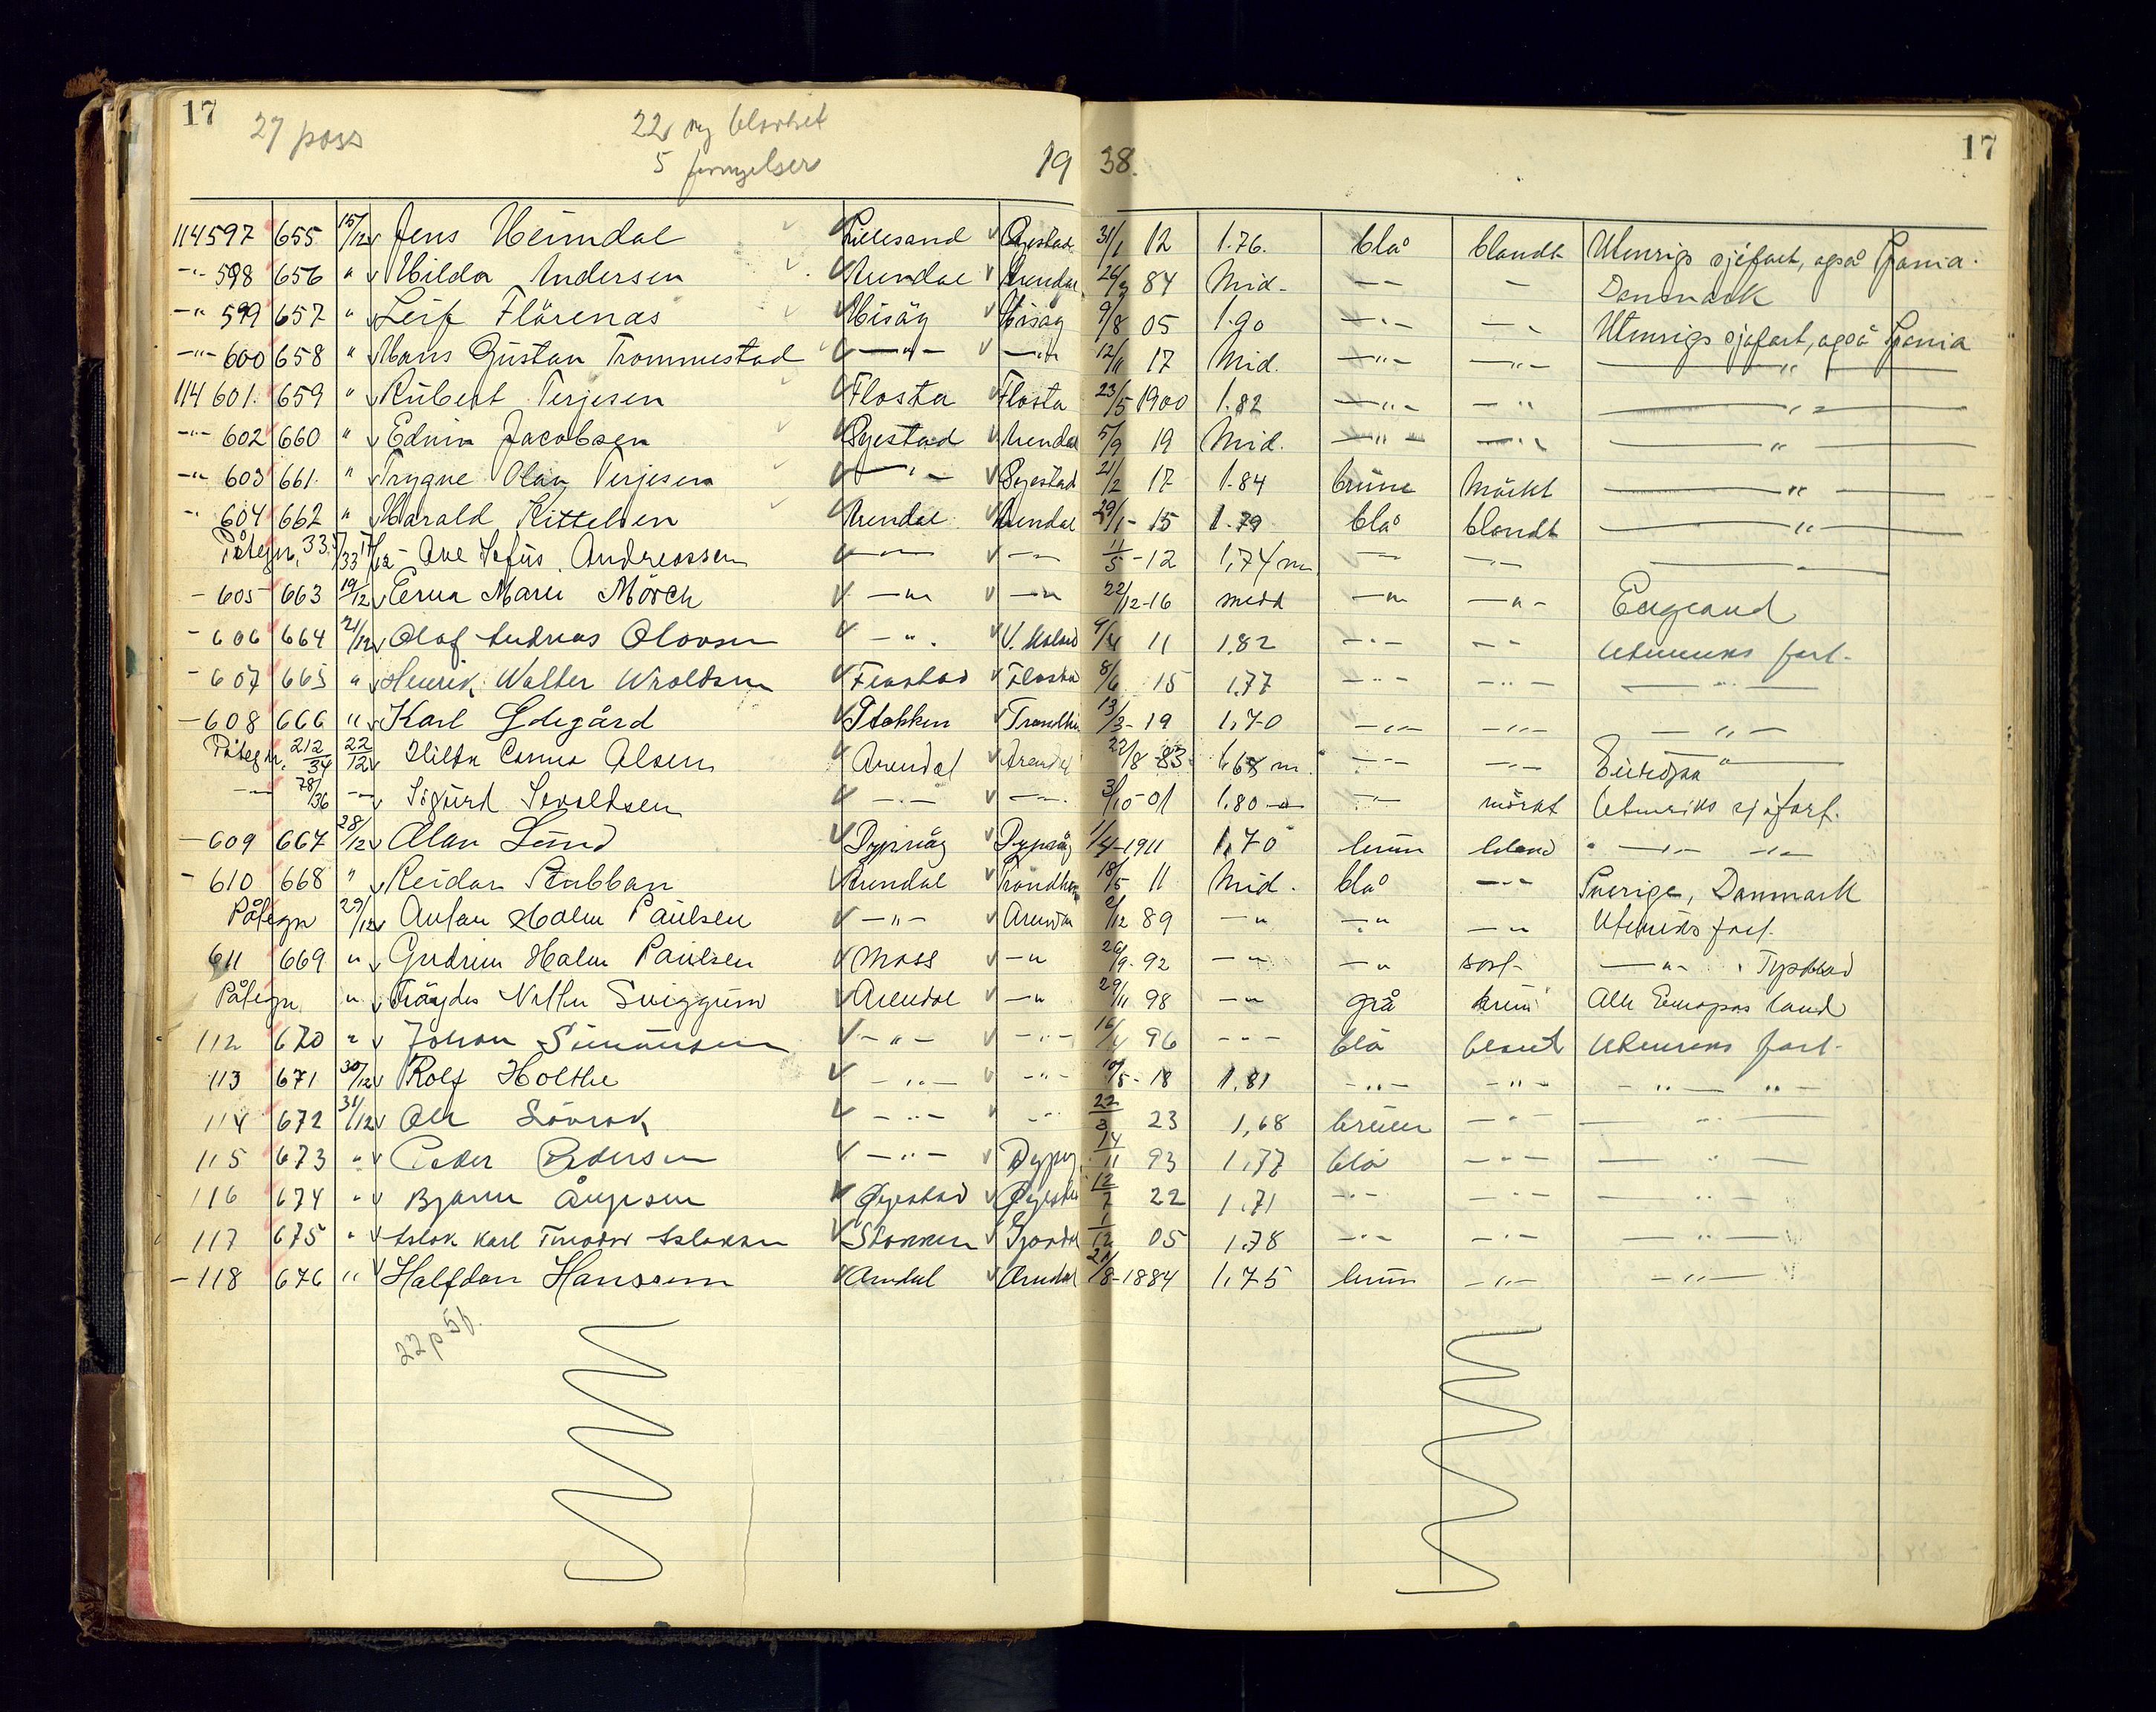 17 27 pass 22 ny blankett 17
5 fornyelser 19 38.
114597 655 15/12 Jens Heimdal Lillesand Øyestad 31/1 12 1.76. blå blandt Utenrigs sjøfart, også Spania.
-"- 598 656 " Hilda Andersen Arendal Arendal 84 Mid. — — — Danmark
-"- 599 657 " Leif Flørenæs Hisøy Hisøy 9/8 05 1.90 —"— —"— Utenrigs sjøfart, også Spania
-"- 600 658 " Hans Gustav Trommestad —"— —"— 12/11 17 Mid. —"— —"— —"—
114 601. 659 " Robert Terjesen Flosta Flosta 23/5 1900 1.82 —"— —"— —"—
-"- 602 660 " Edvin Jacobsen Øyestad Arendal 5/9 19 Mid. —"— —"— —"—
-"- 603 661. " Trygve Olav Terjesen —"— Øyestad 21/2 17 1.84 brune mörkt —"—
-"- 604 662 " Harald Kittelsen Arendal Arendal 29/1 - 15 1.79 blå blandt —"—
Påtegn. 33 17/12 - Andreassen —"— —"— 11/5 - 12 1,74 m —"— —"— —"—
- 605 663 19/12 Erna Marie Mörch —"— —"— 22/12-16 midd —"— —"— England
- 606 664 21/12 Olaf Andreas Olavsen —"— 11 1,82 —"— —"— Utenriks fart.
- 607 665 " Henrik Walter Wroldsen Flostad Flosta 8/6 15 1,77 —"— —"— —"—
- 608 666 " Karl Stokken 13/3 - 19 1,70 —"— —"— —"—
Påtegn. 212/34 22/12 Olsen Arendal Arendal 22/8 83 1,68 m. —"— —"— Europa
—"— 78/36 —"— Sigurd —"— —"— 3/10-01 1.80 —"— —"— mörkt Utenriks sjøfart.
- 609 667 28/12 Alan Lund Dypvåg Dypvåg 1/4-1911 1,70 brun bland —"— —"—
- 610 668 " Reidar Stubban Arendal Trondheim 18/5 11 Mid. blå —"— Sverige, Danmark
Påtegn 29/12 Anton Holm Paulsen —"— Arendal 2/12 89 —"— —"— —"— Utenriks fart.
611 669 " Gudrun Holm Paulsen Moss —"— 26/9-92 —"— —"— sort —"— Tyskland
Påtegn. " Arendal —"— 29/11 98 —"— grå brun Alle Europas land
112 670 " Johan Simonsen —"— —"— 16/4 96 —"— blå blandt Utenriks fart.
113 671 30/12 Rolf Holthe —"— —"— 10/5-18 1,81 —"— —"— —"— —"—
114 672 31/12 Ole —"— —"— 22/3 23 1,68 brune —"— —"—
115 673 " Peder Pedersen —"— Dypv. 14/11 93 1,77 blå —"— —"—
116 674 " Bjarne Øyestad Øyestad 12/7 22 1,71 —"— —"— —"—
117 675 " Aslak Karl Teodor Aslaksen Stokken 1/12 05 1.78 —"— —"— —"—
- 118 676 " Halfdan Hanssen Arendal Arendal 21/8-1884 1,75 brun —"— —"—
22 p 5 f.